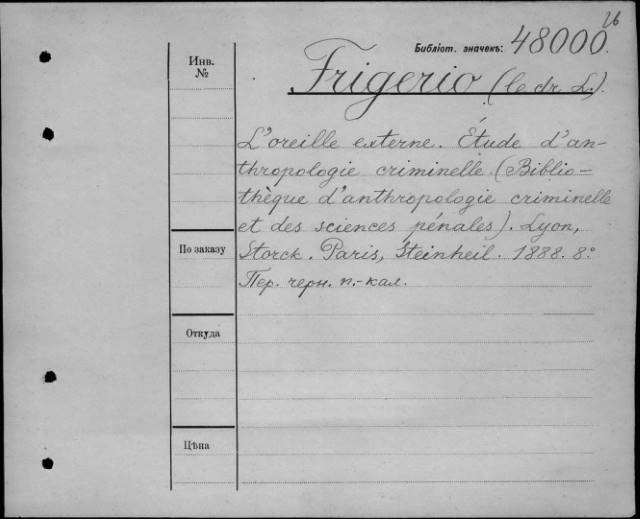 26
Библіот. значекъ: 48000.
Инв.
№
Frigerio (le dr. L.).
L'oreille externe. Étude d'an-
thropologie criminelle. (Biblio-
thèque d'anthropologie criminelle
et des sciences pénales). Lyon,
По заказу
Storck. Paris, Steinheil. 1888. 8.°
Пер. черн. п.-кал.
Откуда
Цѣна